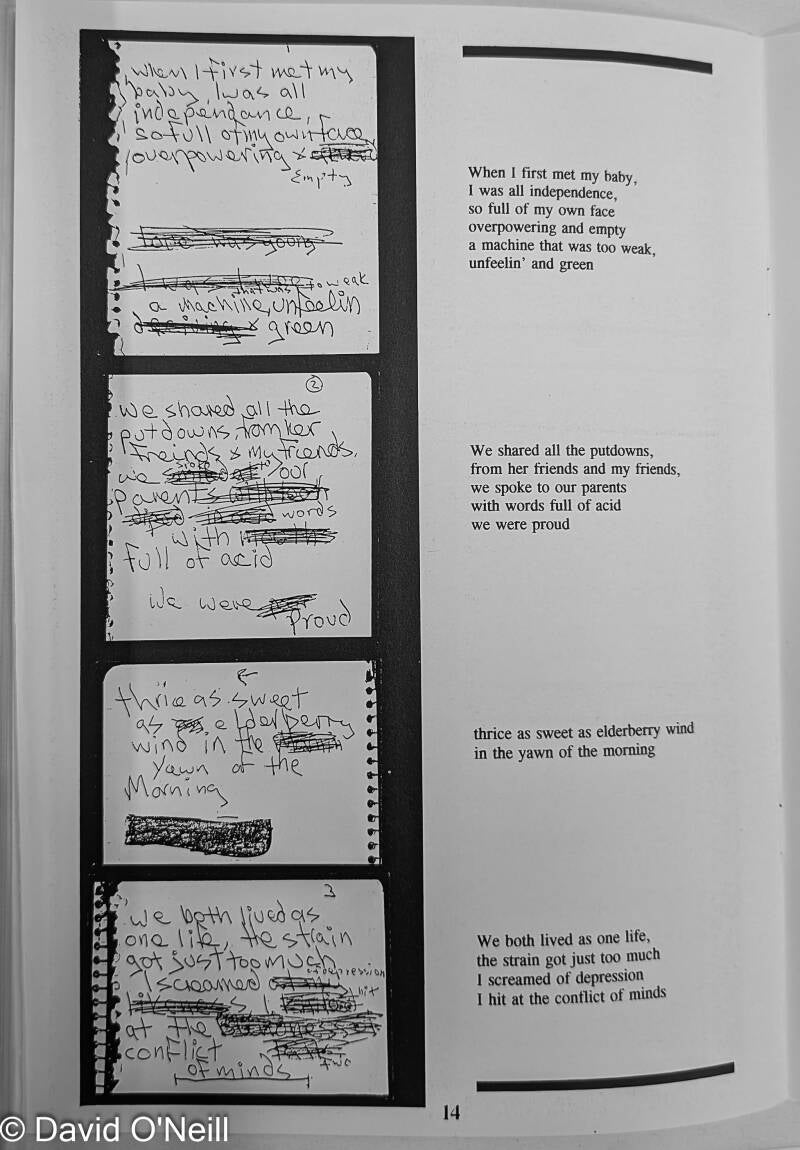 1
when I first met my
baby, I was all
independance,
so full of my own face
overpowering &
Empty
Love was young
I was
to weak
that was
a machine, unfeelin
& green
2
we shared all the
putdowns, from her
Freinds & my friends.
we spoke to our
parents
words
with mouths
full of acid
we were
Proud
thrice as sweet
as elderberry
wind in the
Yawn of the
Morning
3
we both lived as
one life, the strain
got just too much
of depression
I screamed
hit
I
at the
conflict
two
of minds
When I first met my baby,
I was all independence,
so full of my own face
overpowering and empty
a machine that was too weak,
unfeelin' and green
We shared all the putdowns,
from her friends and my friends,
we spoke to our parents
with words full of acid
we were proud
thrice as sweet as elderberry wind
in the yawn of the morning
We both lived as one life,
the strain got just too much
I screamed of depression
I hit at the conflict of minds
14
© David O'Neill